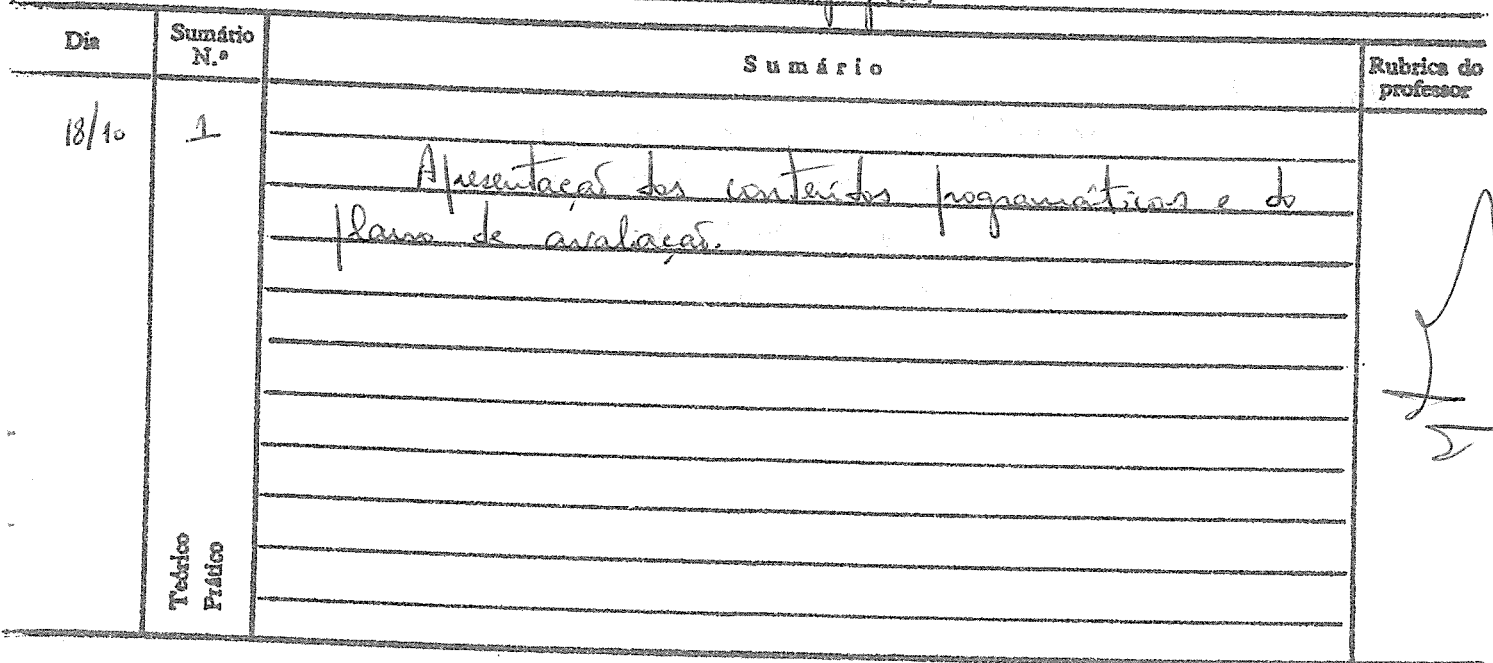 Dia
Sumário
N.º
Sumário
Rubrica do
professor
18/10
1
Apresentação dos conteúdos programáticos e do
plano de avaliação.
Teórico
Prático